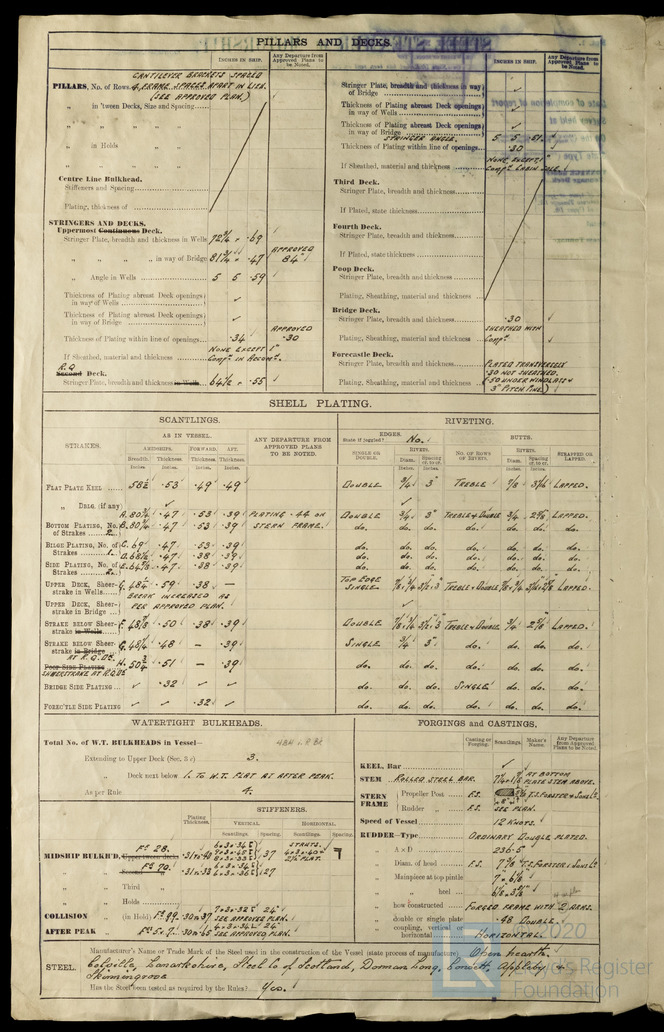 PILLARS AND DECKS.
INCHES IN SHIP.
Any Departure from Approved Plans to be Noted.
CANTILEVER BRACKETS SPACED
PILLARS, No. of Rows 4 FRAME SPACES APART IN LIEU.
(SEE APPROVED PLAN.)
„ in 'tween Decks, Size and Spacing
„ „ „ „
„ in Holds „
„ „ „
Centre Line Bulkhead.
Stiffeners and Spacing
Plating, thickness of
STRINGERS AND DECKS.
Uppermost Continuous Deck.
Stringer Plate, breadth and thickness in Wells 72¾ × .69
„ „ „ „ in way of Bridge 81¾ × .47 APPROVED 84"
„ Angle in Wells 5 5 .59
Thickness of Plating abreast Deck openings in way of Wells
Thickness of Plating abreast Deck openings in way of Bridge
Thickness of Plating within line of openings .34 APPROVED .30
If Sheathed, material and thickness NONE EXCEPT 1" COMPN IN ACCOMN.
R.Q.
Second Deck.
Stringer Plate, breadth and thickness in Wells 64½ × .55
INCHES IN SHIP.
Any Departure from Approved Plans to be Noted.
Stringer Plate, breadth and thickness in way of Bridge
Thickness of Plating abreast Deck openings in way of Wells
Thickness of Plating abreast Deck openings in way of Bridge
STRINGER ANGLE. 5 5 .51
Thickness of Plating within line of openings .30
If Sheathed, material and thickness NONE EXCEPT 1" COMPN CABIN SOLE
Third Deck.
Stringer Plate, breadth and thickness
If Plated, state thickness
Fourth Deck.
Stringer Plate, breadth and thickness
If Plated, state thickness
Poop Deck.
Stringer Plate, breadth and thickness
Plating, Sheathing, material and thickness
Bridge Deck.
Stringer Plate, breadth and thickness .30
Plating, Sheathing, material and thickness SHEATHED WITH COMPN
Forecastle Deck.
Stringer Plate, breadth and thickness PLATED TRANSVERSELY
Plating, Sheathing, material and thickness .30 NOT SHEATHED.
(.50 UNDER WINDLASS & 3" PITCH PINE.)
SHELL PLATING.
SCANTLINGS.
RIVETING.
STRAKES.
AS IN VESSEL.
AMIDSHIPS. FORWARD. AFT.
Breadth. Thickness Thickness. Thickness.
Inches. Inches. Inches. Inches.
ANY DEPARTURE FROM APPROVED PLANS TO BE NOTED.
EDGES.
State if joggled? No.
SINGLE OR DOUBLE.
RIVETS.
Diam. Spacing cr. to cr.
BUTTS.
NO. OF ROWS OF RIVETS.
RIVETS.
Diam. Spacing cr. to cr.
STRAPPED OR LAPPED.
FLAT PLATE KEEL 58½ .53 .49 .49 DOUBLE ¾ 3" TREBLE 7/8 LAPPED.
„ DBLG. (if any)
BOTTOM PLATING, No. of Strakes 2 A. 80¾ .47 .53 .39 PLATING .44 ON STERN FRAME. DOUBLE ¾ 3" TREBLE & DOUBLE ¾ 2⅝ LAPPED.
B. 80¼ .47 .53 .39 do. do. do. do. do. do. do.
BILGE PLATING, No. of Strakes 1 C. 69 .47 .53 .39 do. do. do. do. do. do. do.
SIDE PLATING, No. of Strakes 2 D. 68¼ .47 .38 .39 do. do. do. do. do. do. do.
E. 64¾ .47 .38 .39 do. do. do. do. do. do. do.
UPPER DECK, Sheerstrake in Wells G. 48¼ .59 .38 — TOP EDGE SINGLE TREBLE & DOUBLE LAPPED.
BREAK INCREASED AS
UPPER DECK, Sheerstrake in Bridge PER APPROVED PLAN.
STRAKE BELOW Sheerstrake in Wells F. 48⅞ .50 .38 .39 DOUBLE TREBLE & DOUBLE ¾ 2⅝ LAPPED.
STRAKE BELOW Sheerstrake in Bridge AT R.Q.DK. G. 48¼ .48 — .39 SINGLE ¾ 3" do. do. do. do.
POOP SIDE PLATING SHEERSTRAKE AT R.Q.DK H. 50¾ .51 — .39 do. do. do. do. do. do. do.
BRIDGE SIDE PLATING .32 do. do. do. SINGLE do. do. do.
FOREC'TLE SIDE PLATING .32 do. do. do. do. do. do. do.
WATERTIGHT BULKHEADS.
Total No. of W.T. BULKHEADS in Vessel—
Extending to Upper Deck (Sec. 3 c) 3.
„ Deck next below 1. TO W.T. FLAT AT AFTER PEAK.
As per Rule 4.
Plating Thickness.
STIFFENERS.
VERTICAL. HORIZONTAL.
Scantlings. Spacing. Scantlings. Spacing.
MIDSHIP BULKH'D, Upper tween decks FR 28. 37 STRUTS.
„ Second FR 70. 27
„ Third „
„ Holds
COLLISION „ (in Hold) FR 99. .30 to .37 24" SEE APPROVED PLAN.
AFTER PEAK „ FR 5 to 7. 24" SEE APPROVED PLAN.
FORGINGS and CASTINGS.
Casting or Forging. Scantlings. Maker's Name. Any Departure from Approved Plans to be Noted.
KEEL, Bar
STEM ROLLED STEEL BAR. AT BOTTOM PLATE STEM ABOVE.
STERN FRAME Propeller Post F.S. T.S. FORSTER & SONS LD
Rudder „ F.S. SEE PLAN.
Speed of Vessel 12 KNOTS.
RUDDER—Type ORDINARY DOUBLE PLATED.
„ A × D 236.5
„ Diam. of head F.S. 7⅞ T.S. FORSTER & SONS LD
„ Mainpiece at top pintle 7 × 6⅛
„ „ heel
„ how constructed FORGED FRAME WITH 2 ARMS.
„ double or single plate .98 DOUBLE.
„ coupling, vertical or horizontal HORIZONTAL.
STEEL.
Manufacturer's Name or Trade Mark of the Steel used in the construction of the Vessel (state process of manufacture) Open hearth.
Colville, Lanarkshire, Steel Co of Scotland, Dorman Long, Consett, Appleby &
Skinningrove
Has the Steel been tested as required by the Rules? Yes.
© 2020
Lloyd's Register
Foundation